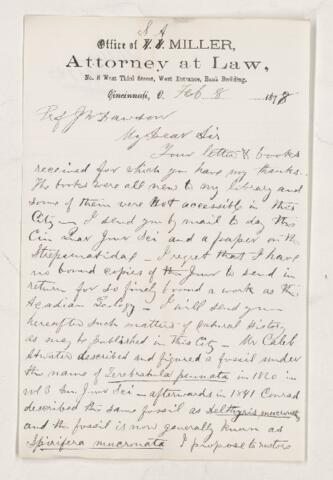 S. A.
Office of MILLER,
Attorney at Law,
No. 8 West Third Street, West Entrance, Bank Building.
Cincinnati, O. Feb 8 1878
Prof J W Dawson
My Dear Sir
Your letter & books
received for which you have my thanks.
The books were all new to my library and
some of them were not accessible in this
City — I send you by mail to day the
Cin Quar Jour Sci and a paper on the
Strepsmatidae — I regret that I have
no bound copies of the Jour to send in
return for so finely bound a work as the
Acadian Geology — I will send you
hereafter such matters of natural History
as may be published in this City — Mr Caleb
Atwater described and figured a fossil under
the name of Terebratula pennata in 1820 in
vol 3 Am Jour Sci — afterwards in 1841 Conrad
described the same fossil as Delthyris mucronata
and the fossil is now generally known as
Spirifera mucronata I propose to restore